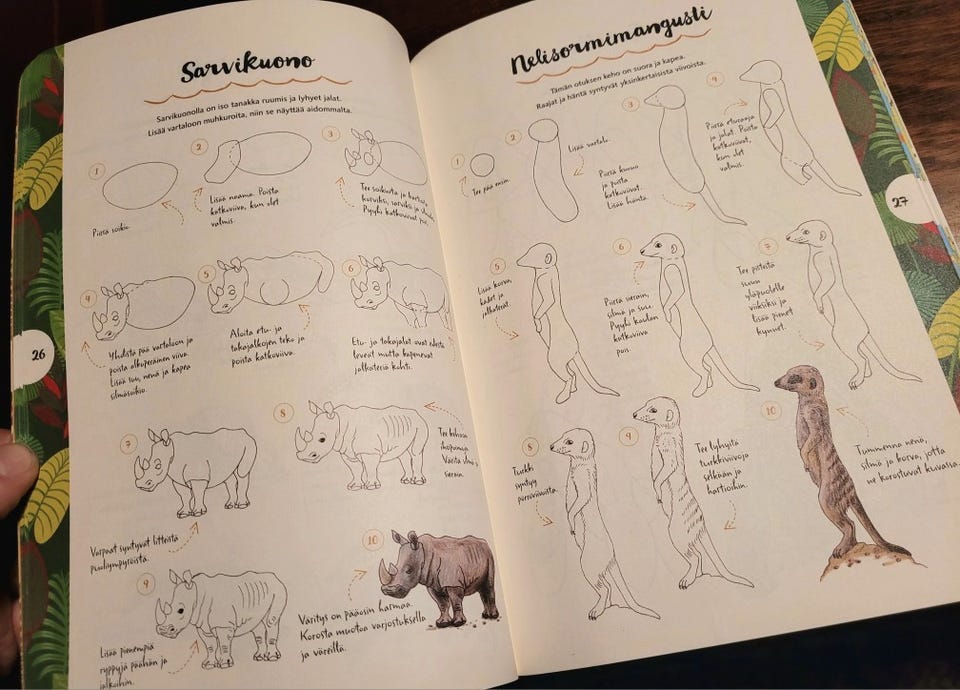 Sarvikuono
Sarvikuonolla on iso tanakka ruumis ja lyhyet jalat.
Lisää vartaloon muhkuroita, niin se näyttää aidommalta.
1
Piirrä soikio.
2
Lisää naama. Poista
katkoviiva, kun olet
valmis.
3
Tee soikiota ja kartio,
korviksi, sarviksi ja
Pyyhi katkoviivat pois.
4
Yhdistä pää vartaloon ja
poista alkuperäinen viiva.
Lisää suu, nenä ja kapea
silmäsoikio.
5
Aloita etu- ja
takajalkojen teko ja
poista katkoviiva.
6
Etu- ja takajalat ovat edestä
leveät mutta kapenevat
jalkateriä kohti.
7
Varpaat syntyvät litteistä
puoliympyröistä.
8
Tee kehoon
ryppyjä
Väritä silmä
sierain.
9
Lisää pienempiä
ryppyjä päähän ja
jalkoihin.
10
Väritys on pääosin harmaa.
Korosta muotoa varjostuksella
ja väreillä.
26
Nelisormimangusti
Tämän otuksen keho on suora ja kapea.
Raajat ja häntä syntyvät yksinkertaisista viivoista.
1
Tee pää ensin.
2
Lisää vartalo.
3
Piirrä kuono
ja poista
katkoviivat.
Lisää häntä.
4
Piirrä eturaaja
ja jalat. Poista
katkoviivat,
kun olet
valmis.
5
Lisää korva,
kädet ja
jalkaterät.
6
Piirrä sierain,
silmä ja suu.
Pyyhi kaulan
katkoviiva
pois.
7
Tee pisteitä
suun
yläpuolelle
viiksiksi ja
lisää pienet
kynnet.
8
Turkki
syntyy
poroviivoista.
9
Tee lyhyitä
turkkiviivoja
selkään ja
hartioihin.
10
Tummenna nenä,
silmä ja korva, jotta
ne korostuvat kuvassa.
27